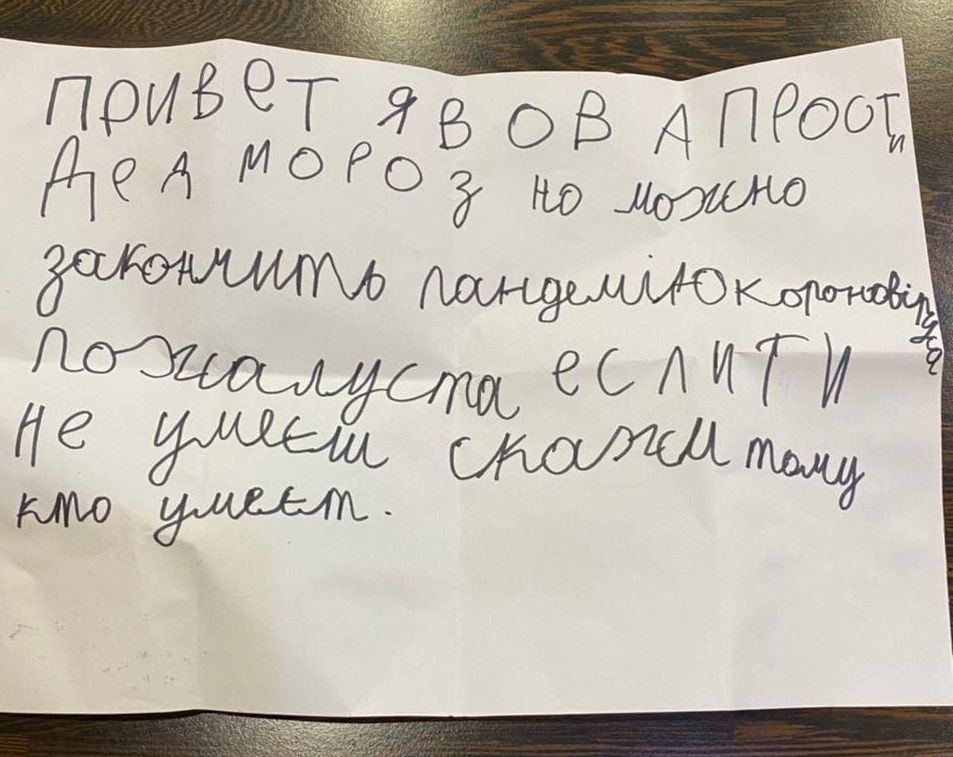 ПРИВЕТ Я ВОВА ПРОСТИ
ДЕД МОРОЗ но можно
закончить пандемiю короновiруса
пожалуста если ти
не умеєш скажи тому
кто умеєт.